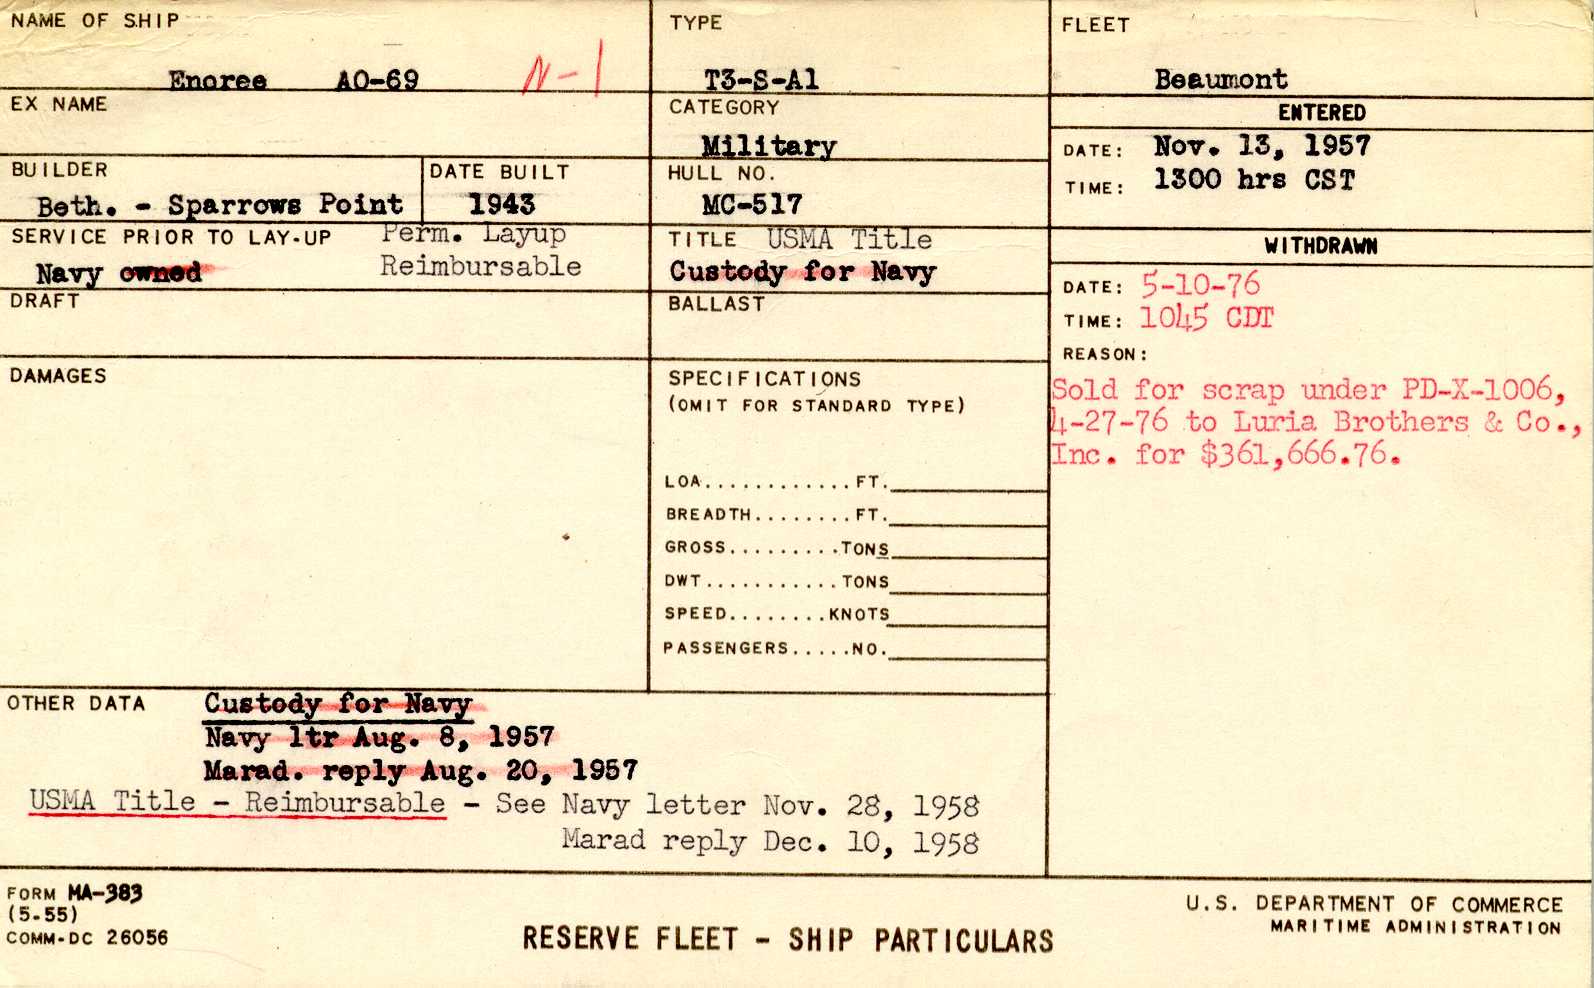 NAME OF SHIP
Enoree AO-69 N-1
EX NAME
BUILDER
Beth. - Sparrows Point
DATE BUILT
1943
SERVICE PRIOR TO LAY-UP Perm. Layup
Navy owned Reimbursable
DRAFT
DAMAGES
TYPE
T3-S-A1
CATEGORY
Military
HULL NO.
MC-517
TITLE USMA Title
Custody for Navy
BALLAST
SPECIFICATIONS
(OMIT FOR STANDARD TYPE)
LOA............FT.
BREADTH........FT.
GROSS.........TONS
DWT...........TONS
SPEED........KNOTS
PASSENGERS.....NO.
FLEET
Beaumont
ENTERED
DATE: Nov. 13, 1957
TIME: 1300 hrs CST
WITHDRAWN
DATE: 5-10-76
TIME: 1045 CDT
REASON:
Sold for scrap under PD-X-1006,
4-27-76 to Luria Brothers & Co.,
Inc. for $361,666.76.
OTHER DATA Custody for Navy
Navy ltr Aug. 8, 1957
Marad. reply Aug. 20, 1957
USMA Title - Reimbursable - See Navy letter Nov. 28, 1958
Marad reply Dec. 10, 1958
FORM MA-383
(5-55)
COMM-DC 26056
RESERVE FLEET - SHIP PARTICULARS
U.S. DEPARTMENT OF COMMERCE
MARITIME ADMINISTRATION